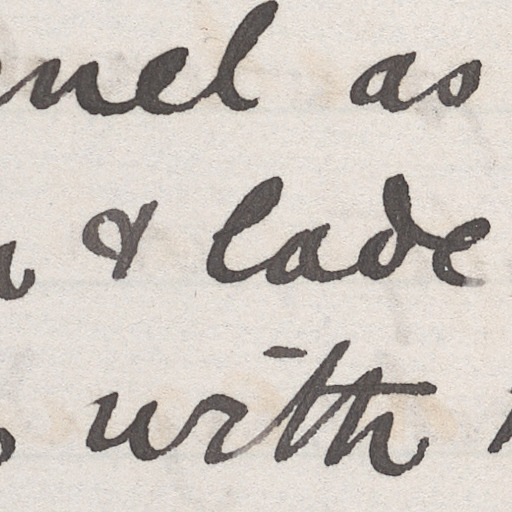 nel as
& lade
with